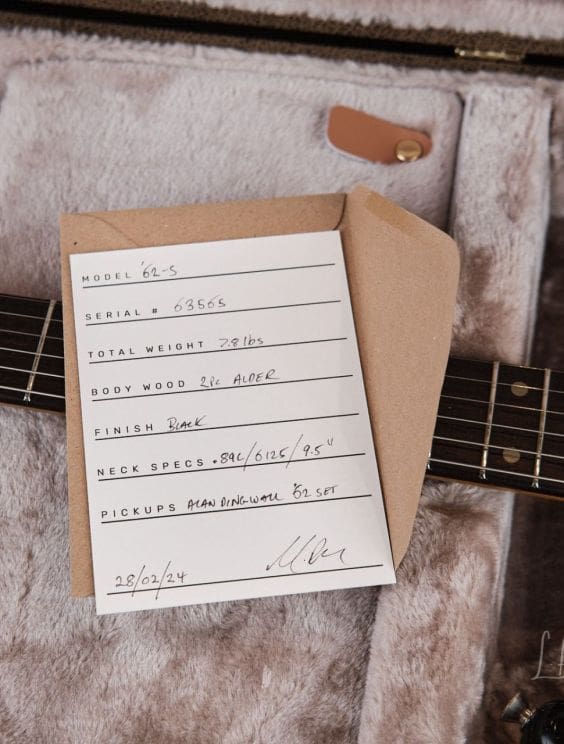 MODEL '62-S
SERIAL # 63565
TOTAL WEIGHT 7.8 lbs
BODY WOOD 2pc ALDER
FINISH BLACK
NECK SPECS .89C/6125/9.5"
PICKUPS ALAN DINGWALL '62 SET
28/02/24